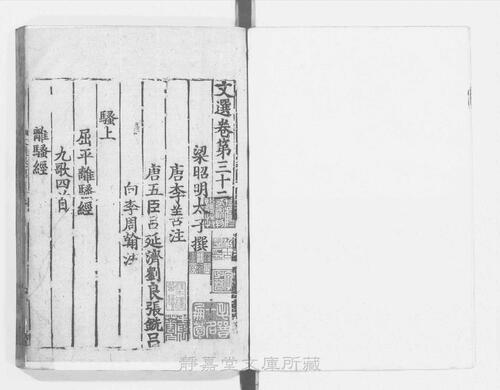 文選卷第三十二
梁昭明太子撰
唐李善注
唐五臣呂延濟劉良張銑呂
向李周翰注
騷上
屈平離騷經
九歌四首
離騷經
靜嘉堂文庫所藏